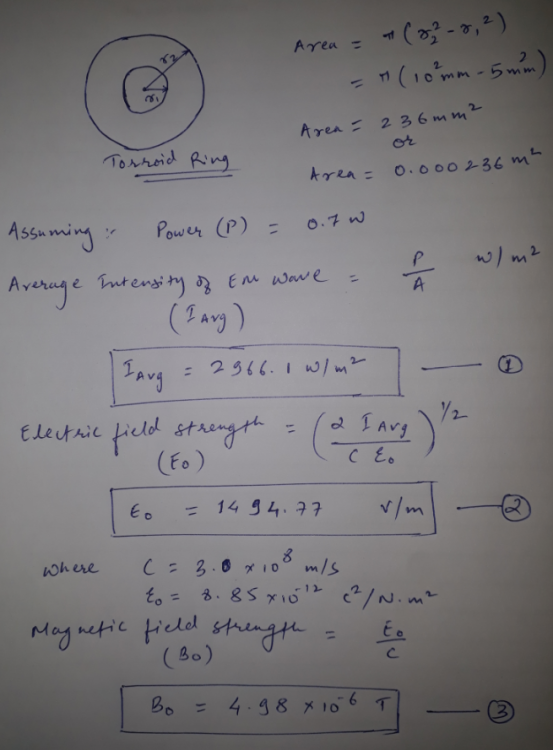 r2
r1
Torroid Ring
Area = π (r2² - r1²)
= π (10² mm - 5² mm)
Area = 236 mm²
or
Area = 0.000236 m²
Assuming :- Power (P) = 0.7 W
Average Intensity of EM wave = P/A W/m²
(I Avg)
I Avg = 2966.1 W/m² — ①
Electric field strength = (2 I Avg / C ε0)^1/2
(E0)
E0 = 1494.77 V/m — ②
where C = 3.0 × 10⁸ m/s
ε0 = 8.85 × 10⁻¹² C²/N.m²
Magnetic field strength = E0/C
(B0)
B0 = 4.98 × 10⁻⁶ T — ③